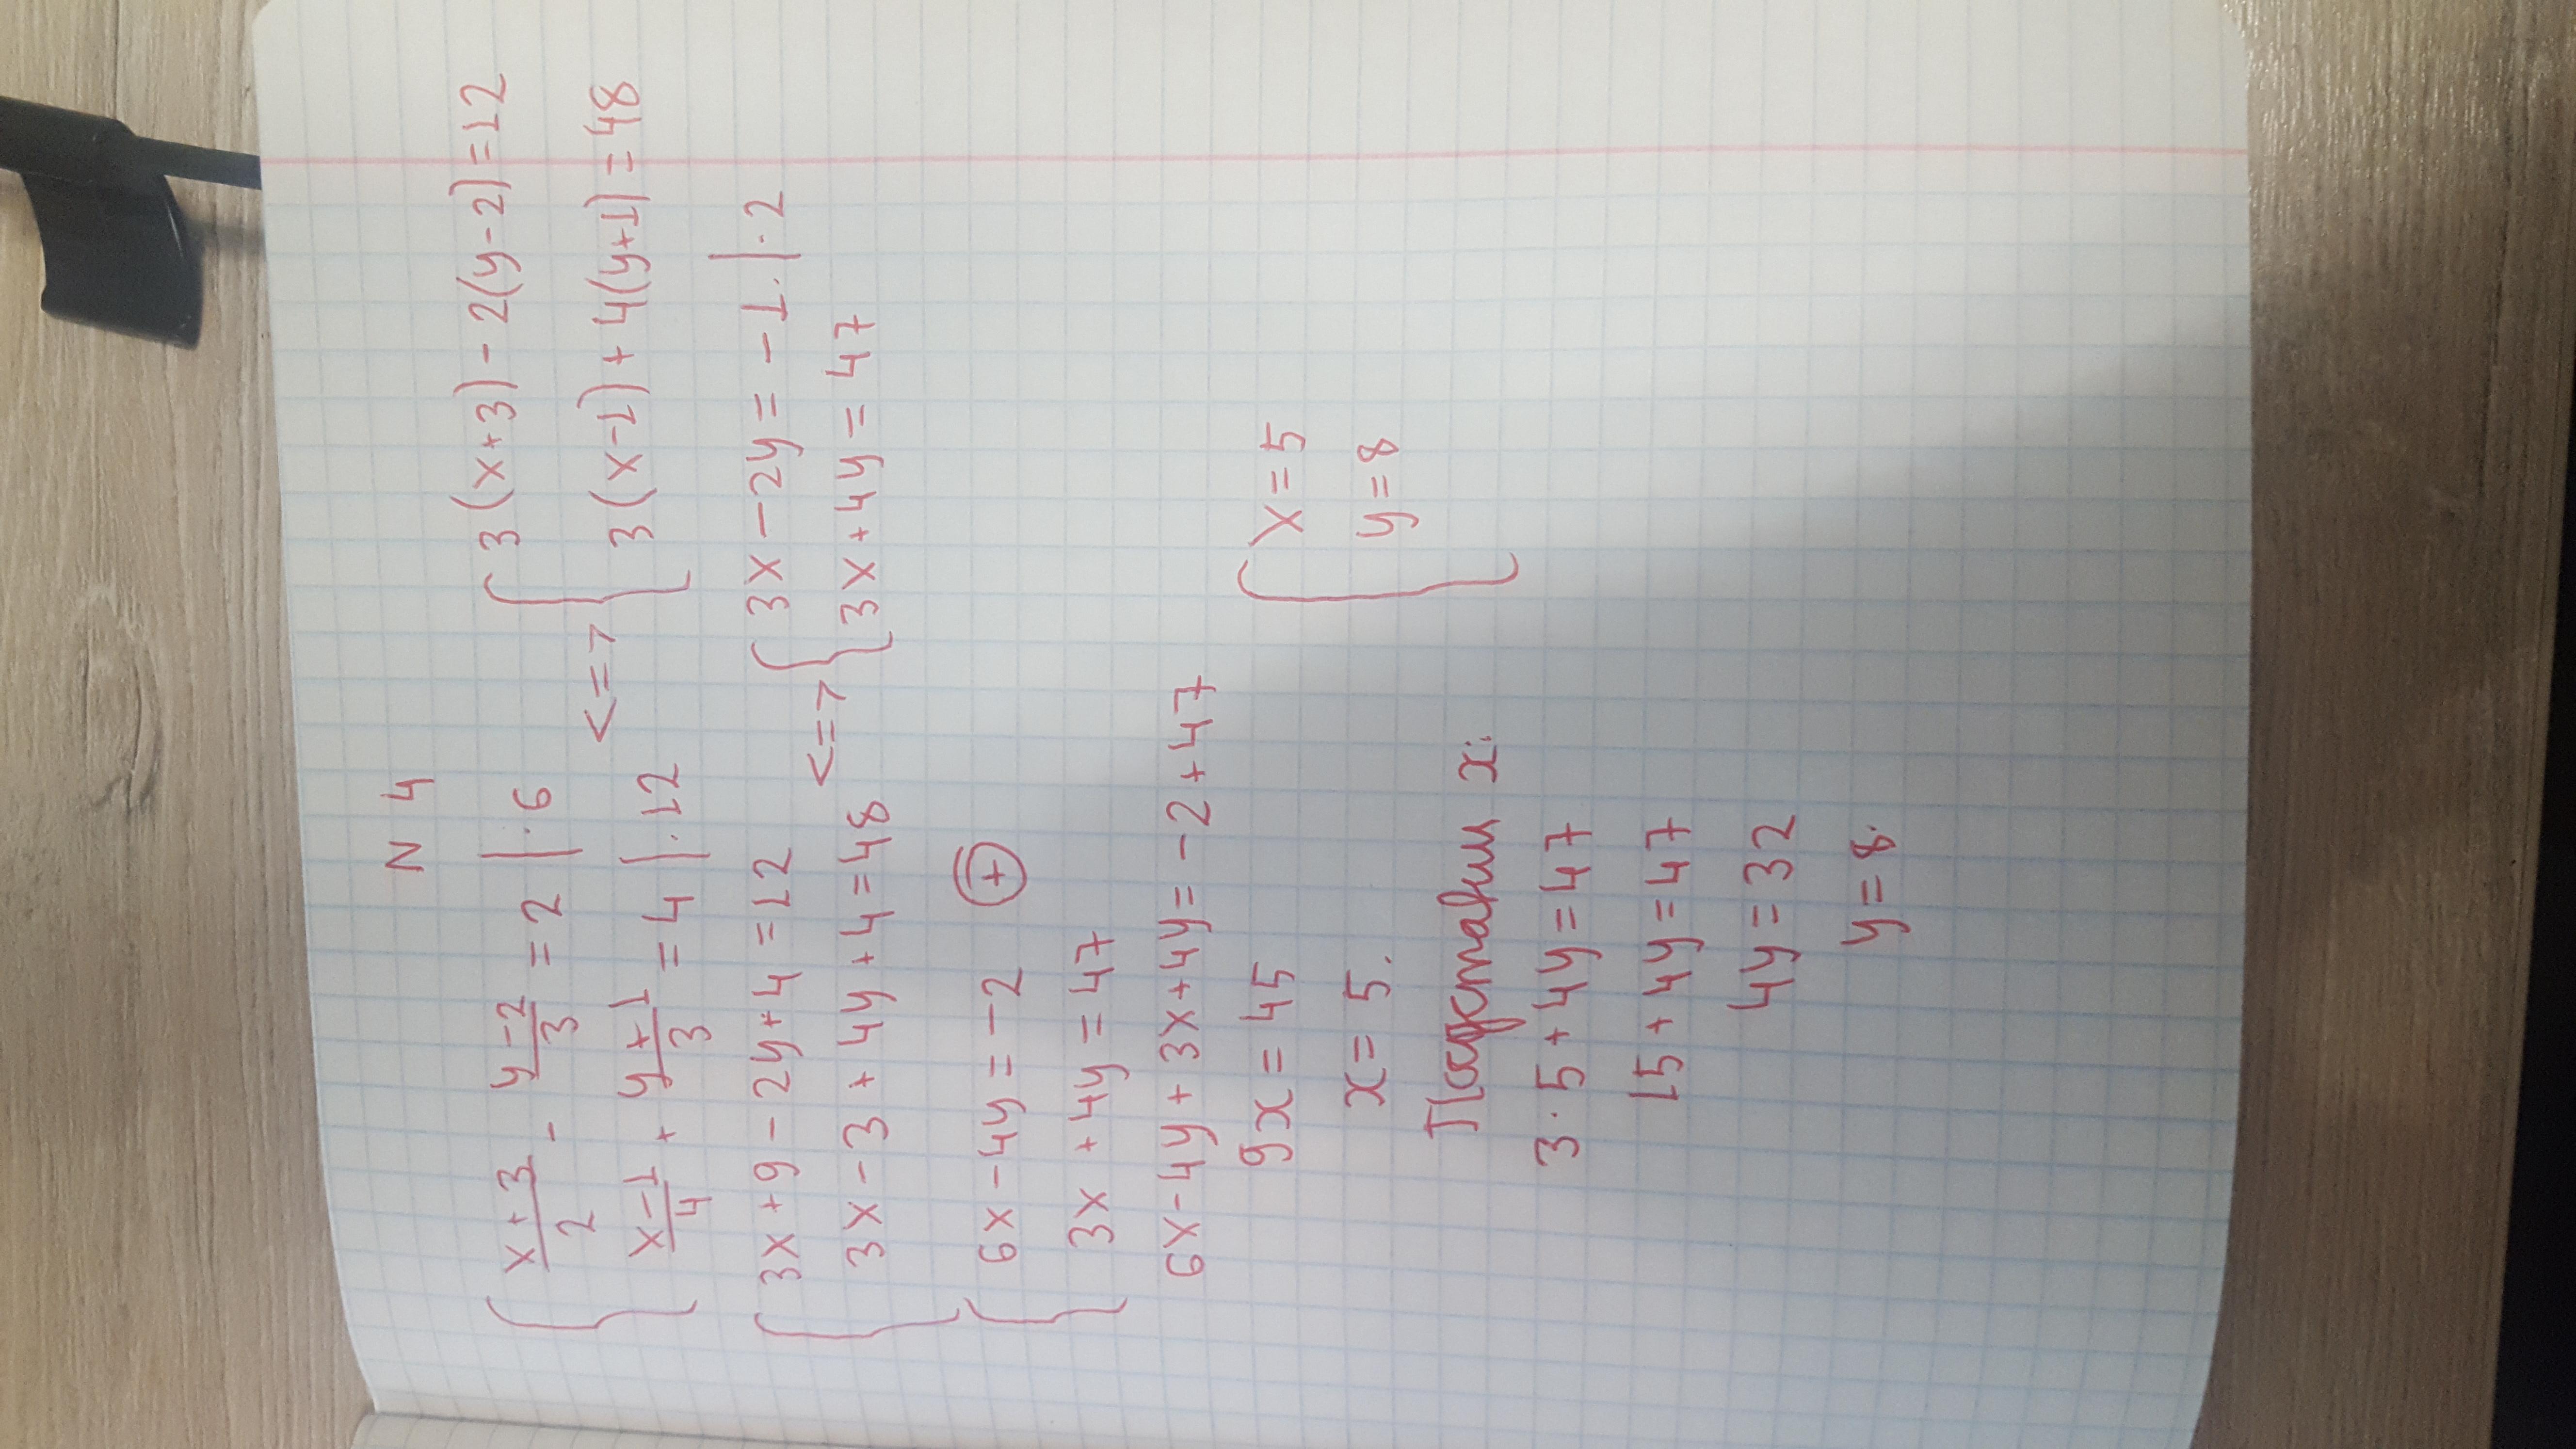 N 4
{ (x+3)/2 - (y-2)/3 = 2 |·6
{ (x-1)/4 + (y+1)/3 = 4 |·12
<=> { 3(x+3) - 2(y-2) = 12
{ 3(x-1) + 4(y+1) = 48
{ 3x+9 - 2y+4 = 12
{ 3x-3 + 4y+4 = 48
<=> { 3x - 2y = -1. |·2
{ 3x + 4y = 47
{ 6x - 4y = -2 (+)
{ 3x + 4y = 47
6x - 4y + 3x + 4y = -2 + 47
9x = 45
x = 5.
Подставим x:
3·5 + 4y = 47
15 + 4y = 47
4y = 32
y = 8.
{ x = 5
{ y = 8